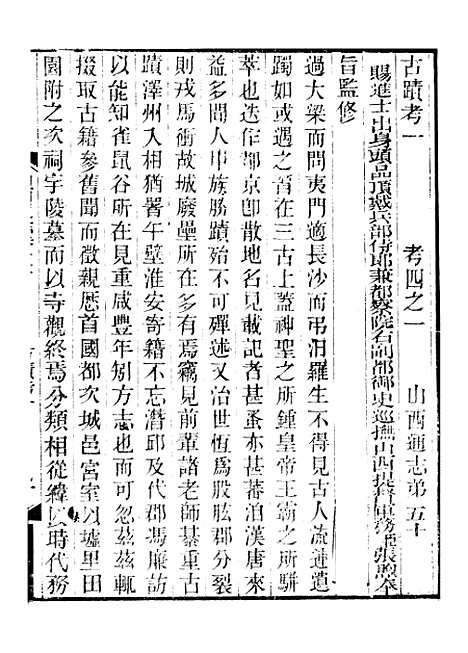 古蹟考一 考四之一 山西通志第五十
賜進士出身頭品頂戴兵部侍郎兼都察院右副都御史巡撫山西提督軍務張煦奉
旨監修
過大梁而問夷門適長沙而弔汨羅生不得見古人流連遺
躅如或遇之晉在三古上蓋神聖之所鍾皇帝王霸之所駢
萃也迭作都京卽散地名見載記者甚蚤亦甚蕃泊漢唐來
益多聞人甲族勝蹟殆不可殫述又治世恆爲股肱郡分裂
則戎馬衝故城廢壘所在多焉竊見前輩諸老師綦重古
蹟澤州入相猶署午壁淮安寄籍不忘潛邱及代郡馮廉訪
以能知雀鼠谷所在見重咸豐年矧方志也可忽茲茲輒
掇取古籍參舊聞而徵親歷首國都次城邑宮室以墟里田
園附之次祠宇陵墓而以寺觀終焉分類相從緯以時代務